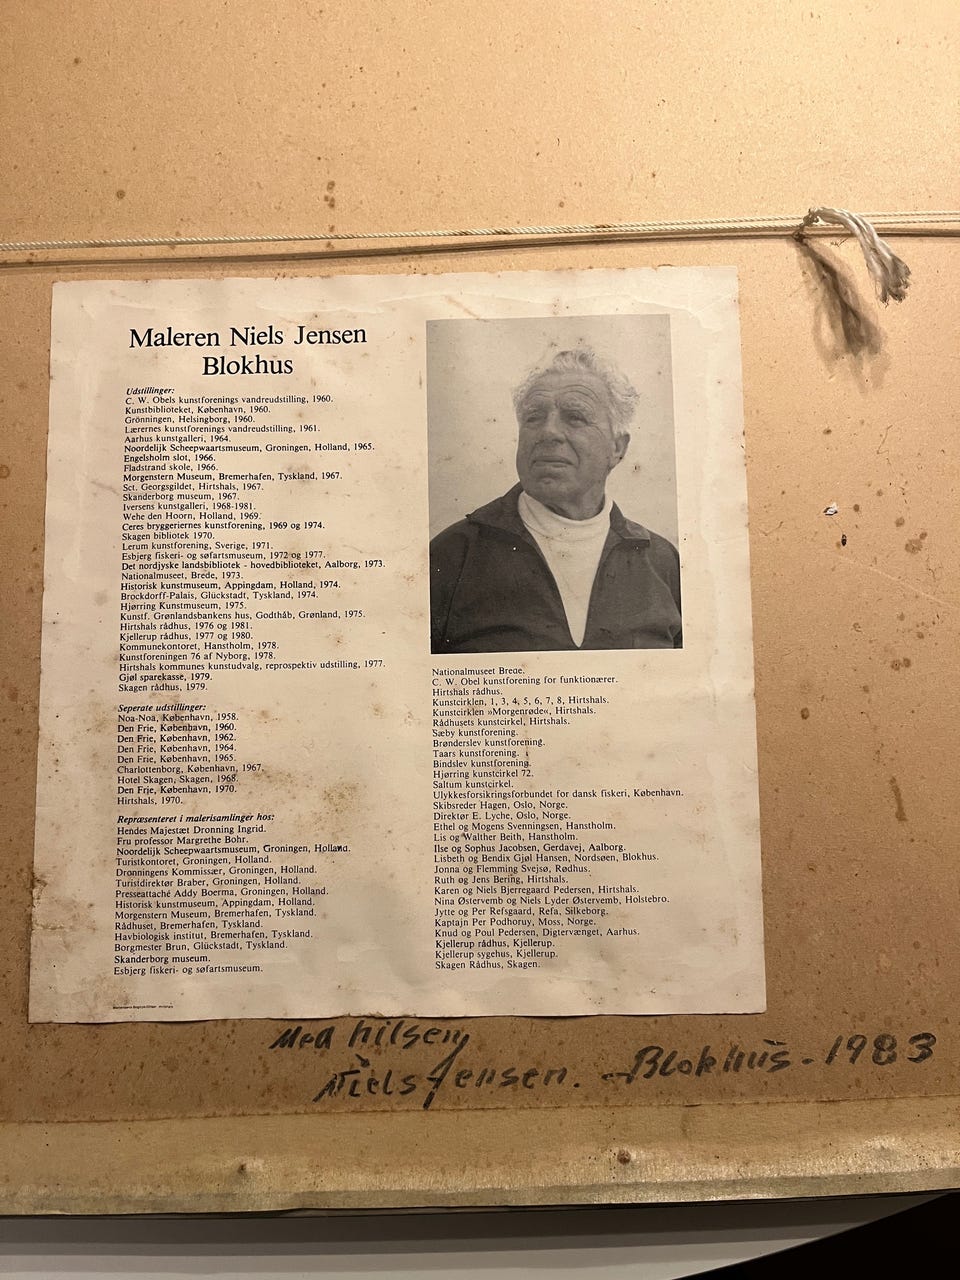 Maleren Niels Jensen
Blokhus
Udstillinger:
C. W. Obels kunstforenings vandreudstilling, 1960.
Kunstbiblioteket, København, 1960.
Grönningen, Helsingborg, 1960.
Lærernes kunstforenings vandreudstilling, 1961.
Aarhus kunstgalleri, 1964.
Noordelijk Scheepwaartsmuseum, Groningen, Holland, 1965.
Engelsholm slot, 1966.
Fladstrand skole, 1966.
Morgenstern Museum, Bremerhafen, Tyskland, 1967.
Sct. Georgsgildet, Hirtshals, 1967.
Skanderborg museum, 1967.
Iversens kunstgalleri, 1968-1981.
Wehe den Hoorn, Holland, 1969.
Ceres bryggeriernes kunstforening, 1969 og 1974.
Skagen bibliotek 1970.
Lerum kunstforening, Sverige, 1971.
Esbjerg fiskeri- og søfartsmuseum, 1972 og 1977.
Det nordjyske landsbibliotek - hovedbiblioteket, Aalborg, 1973.
Nationalmuseet, Brede, 1973.
Historisk kunstmuseum, Appingdam, Holland, 1974.
Brockdorff-Palais, Glückstadt, Tyskland, 1974.
Hjørring Kunstmuseum, 1975.
Kunstf. Grønlandsbankens hus, Godthåb, Grønland, 1975.
Hirtshals rådhus, 1976 og 1981.
Kjellerup rådhus, 1977 og 1980.
Kommunekontoret, Hanstholm, 1978.
Kunstforeningen 76 af Nyborg, 1978.
Hirtshals kommunes kunstudvalg, reprospektiv udstilling, 1977.
Gjøl sparekasse, 1979.
Skagen rådhus, 1979.
Seperate udstillinger:
Noa-Noa, København, 1958.
Den Frie, København, 1960.
Den Frie, København, 1962.
Den Frie, København, 1964.
Den Frie, København, 1965.
Charlottenborg, København, 1967.
Hotel Skagen, Skagen, 1968.
Den Frie, København, 1970.
Hirtshals, 1970.
Repræsenteret i malerisamlinger hos:
Hendes Majestæt Dronning Ingrid.
Fru professor Margrethe Bohr.
Noordelijk Scheepwaartsmuseum, Groningen, Holland.
Turistkontoret, Groningen, Holland.
Dronningens Kommissær, Groningen, Holland.
Turistdirektør Braber, Groningen, Holland.
Presseattaché Addy Boerma, Groningen, Holland.
Historisk kunstmuseum, Appingdam, Holland.
Morgenstern Museum, Bremerhafen, Tyskland.
Rådhuset, Bremerhafen, Tyskland.
Havbiologisk institut, Bremerhafen, Tyskland.
Borgmester Brun, Glückstadt, Tyskland.
Skanderborg museum.
Esbjerg fiskeri- og søfartsmuseum.
Nationalmuseet Brede.
C. W. Obel kunstforening for funktionærer.
Hirtshals rådhus.
Kunstcirklen, 1, 3, 4, 5, 6, 7, 8, Hirtshals.
Kunstcirklen »Morgenrøde«, Hirtshals.
Rådhusets kunstcirkel, Hirtshals.
Sæby kunstforening.
Brønderslev kunstforening.
Taars kunstforening.
Bindslev kunstforening.
Hjørring kunstcirkel 72.
Saltum kunstcirkel.
Ulykkesforsikringsforbundet for dansk fiskeri, København.
Skibsreder Hagen, Oslo, Norge.
Direktør E. Lyche, Oslo, Norge.
Ethel og Mogens Svenningsen, Hanstholm.
Lis og Walther Beith, Hanstholm.
Ilse og Sophus Jacobsen, Gerdavej, Aalborg.
Lisbeth og Bendix Gjøl Hansen, Nordsøen, Blokhus.
Jonna og Flemming Svejsø, Rødhus.
Ruth og Jens Bering, Hirtshals.
Karen og Niels Bjerregaard Pedersen, Hirtshals.
Nina Østervemb og Niels Lyder Østervemb, Holstebro.
Jytte og Per Refsgaard, Refa, Silkeborg.
Kaptajn Per Podhoruy, Moss, Norge.
Knud og Poul Pedersen, Digtervænget, Aarhus.
Kjellerup rådhus, Kjellerup.
Kjellerup sygehus, Kjellerup.
Skagen Rådhus, Skagen.
Med hilsen
Niels Jensen. - Blokhus - 1983